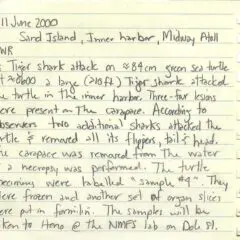 11 June 2000
Sand Island, Inner harbor, Midway Atoll
NWR
Tiger shark attack on ≈ 84cm green sea turtle
≈ 0600 a large (>10ft) Tiger shark attacked
turtle in the inner harbor. Three-four lesions
ere present on the carapace. According to
observers two additional sharks attacked the
rtle & removed all its flippers, tail & head.
he carapace was removed from the water
a necropsy was performed. The turtle
pecimens were labelled "sample #4". They
ere frozen and another set of organ slices
ere put in formilin. The samples will be
ken to Hono @ the NMFS lab on Dole St.